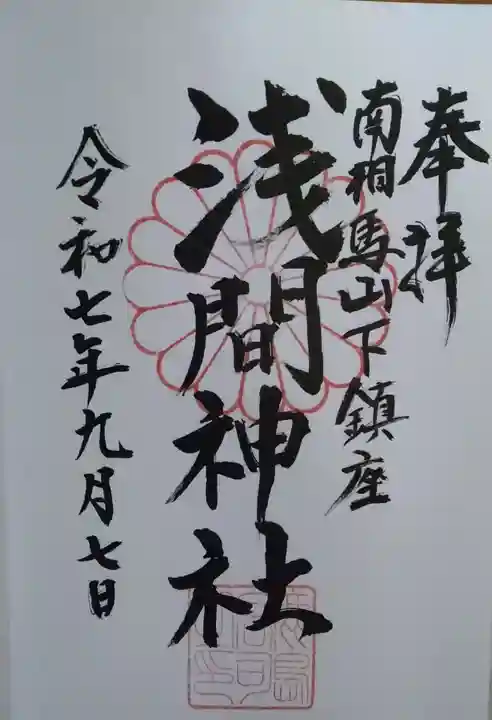 奉拝
南相馬山下鎮座
浅間神社
令和七年九月七日